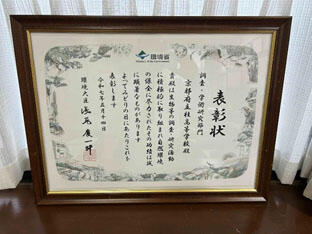 環境省
Ministry of the Environment
表彰状
調査・学術研究部門
京都府立桂高等学校殿
貴殿は生物等の調査・研究活動
に積極的に取り組まれ自然環境
の保全に尽力されたその功績は誠
に顕著なものがあります
よってみどりの日にあたりこれを
表彰します
令和七年五月十四日
環境大臣